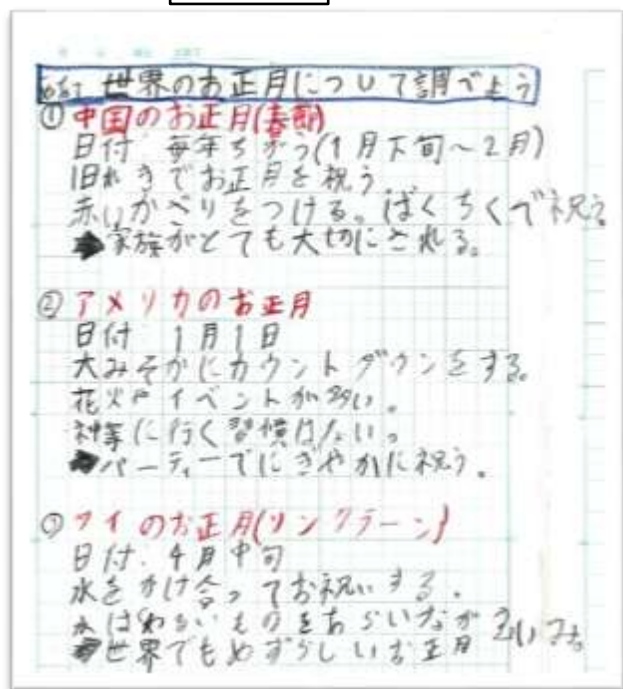 めあて 世界のお正月について調べよう
① 中国のお正月(春節)
日付 毎年ちがう(1月下旬〜2月)
旧れきでお正月を祝う
赤いかざりをつける。ばくちくで祝う
➡家族がとても大切にされる。
② アメリカのお正月
日付 1月1日
大みそかにカウントダウンをする。
花火やイベントが多い。
神事に行く習慣はない。
➡パーティーでにぎやかに祝う。
③ タイのお正月(ソンクラーン)
日付. 4月中旬
水をかけ合ってお祝いする.
水はわるいものをあらいながす
➡世界でもめずらしいお正月